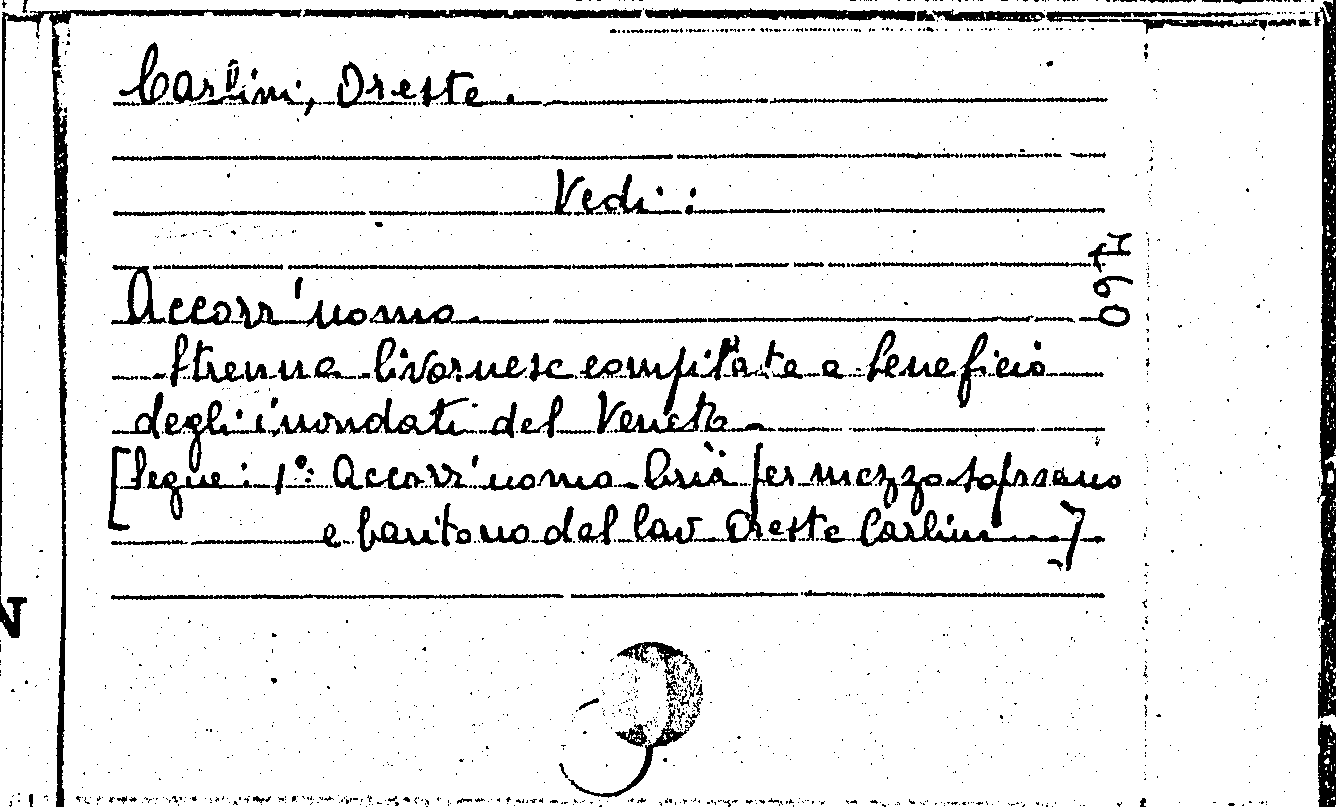 Carlini, Oreste.
Vedi:
Accorr'uomo.
Strenna livornese compilata a beneficio
degli inondati del Veneto.
[Segue: 1°: Accorr'uomo. Aria per mezzo soprano
e baritono del Cav. Oreste Carlini...]
0971
N